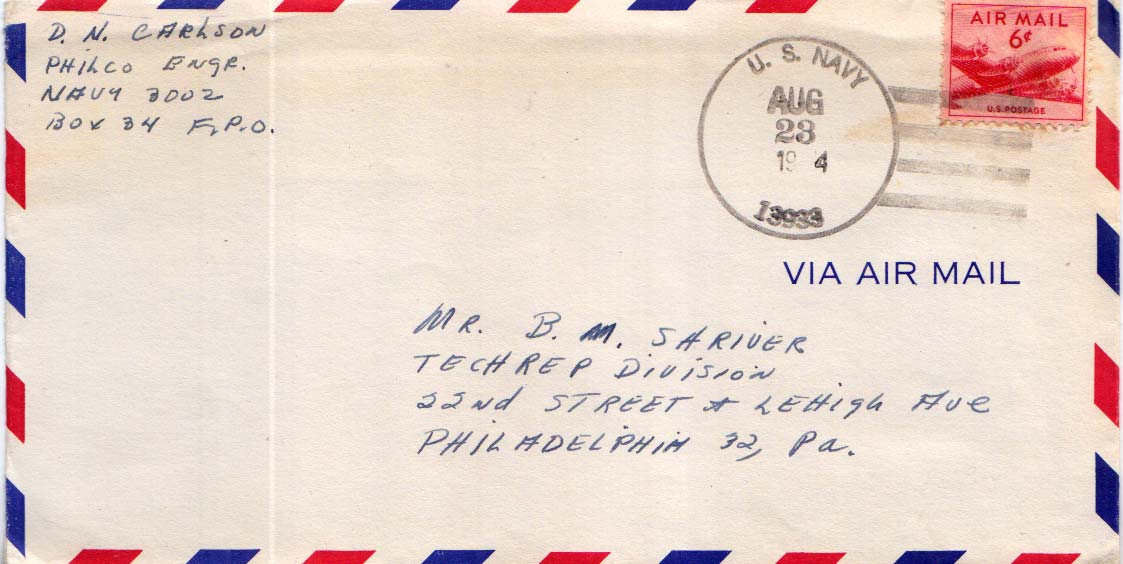 D. N. CARLSON
PHILCO ENGR.
NAVY 3002
BOX 34 F.P.O.
U. S. NAVY
AUG
23
19 4
13933
AIR MAIL
6¢
U.S. POSTAGE
VIA AIR MAIL
MR. B. M. SHRIVER
TECHREP DIVISION
22nd STREET & LEHIGH AVE
PHILADELPHIA 32, Pa.